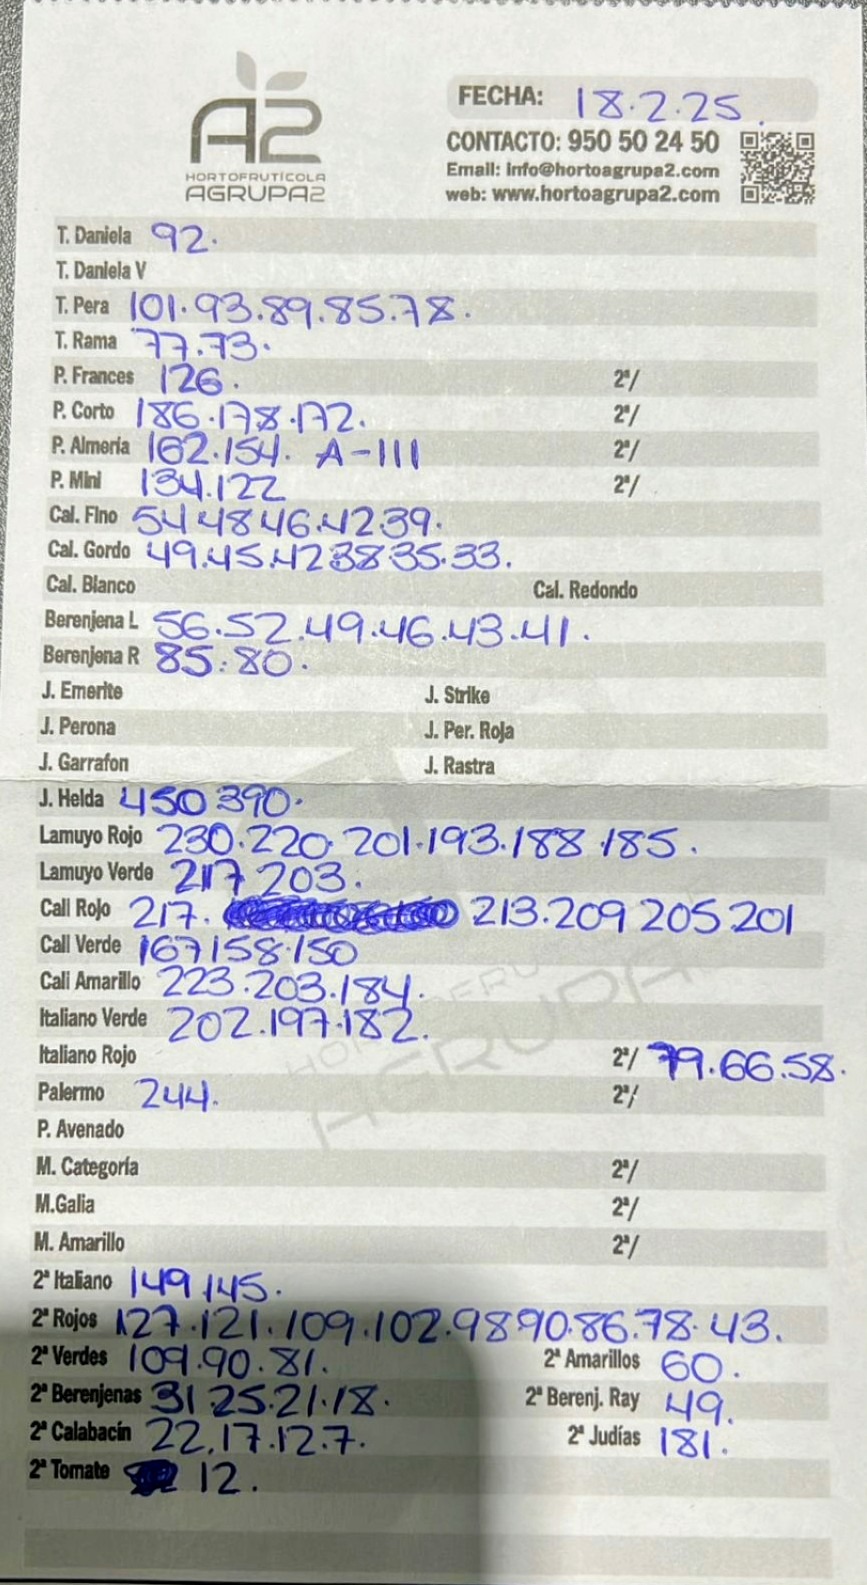 A2
HORTOFRUTÍCOLA
AGRUPA2
FECHA: 18.2.25.
CONTACTO: 950 50 24 50
Email: info@hortoagrupa2.com
web: www.hortoagrupa2.com
T. Daniela 92.
T. Daniela V
T. Pera 101.93.89.85.78.
T. Rama 77.73.
P. Frances 126. 2ª/
P. Corto 186.178.172. 2ª/
P. Almería 162.154. A-111 2ª/
P. Mini 134.122 2ª/
Cal. Fino 54 48 46.42 39.
Cal. Gordo 49.45.42 38 35.33.
Cal. Blanco Cal. Redondo
Berenjena L 56.52.49.46.43.41.
Berenjena R 85.80.
J. Emerite J. Strike
J. Perona J. Per. Roja
J. Garrafon J. Rastra
J. Helda 450 390.
Lamuyo Rojo 230.220.201.193.188.185.
Lamuyo Verde 217 203.
Cali Rojo 217. 213.209 205 201
Cali Verde 167 158.150
Cali Amarillo 223.203.184.
Italiano Verde 202.197.182.
Italiano Rojo 2ª/ 79.66.58.
Palermo 244. 2ª/
P. Avenado
M. Categoría 2ª/
M.Galia 2ª/
M. Amarillo 2ª/
2ª Italiano 149 145.
2ª Rojos 127.121.109.102.98 90.86.78.43.
2ª Verdes 109.90.81. 2ª Amarillos 60.
2ª Berenjenas 31.25.21.18. 2ª Berenj. Ray 49.
2ª Calabacín 22.17.12.7. 2ª Judías 181.
2ª Tomate 12.